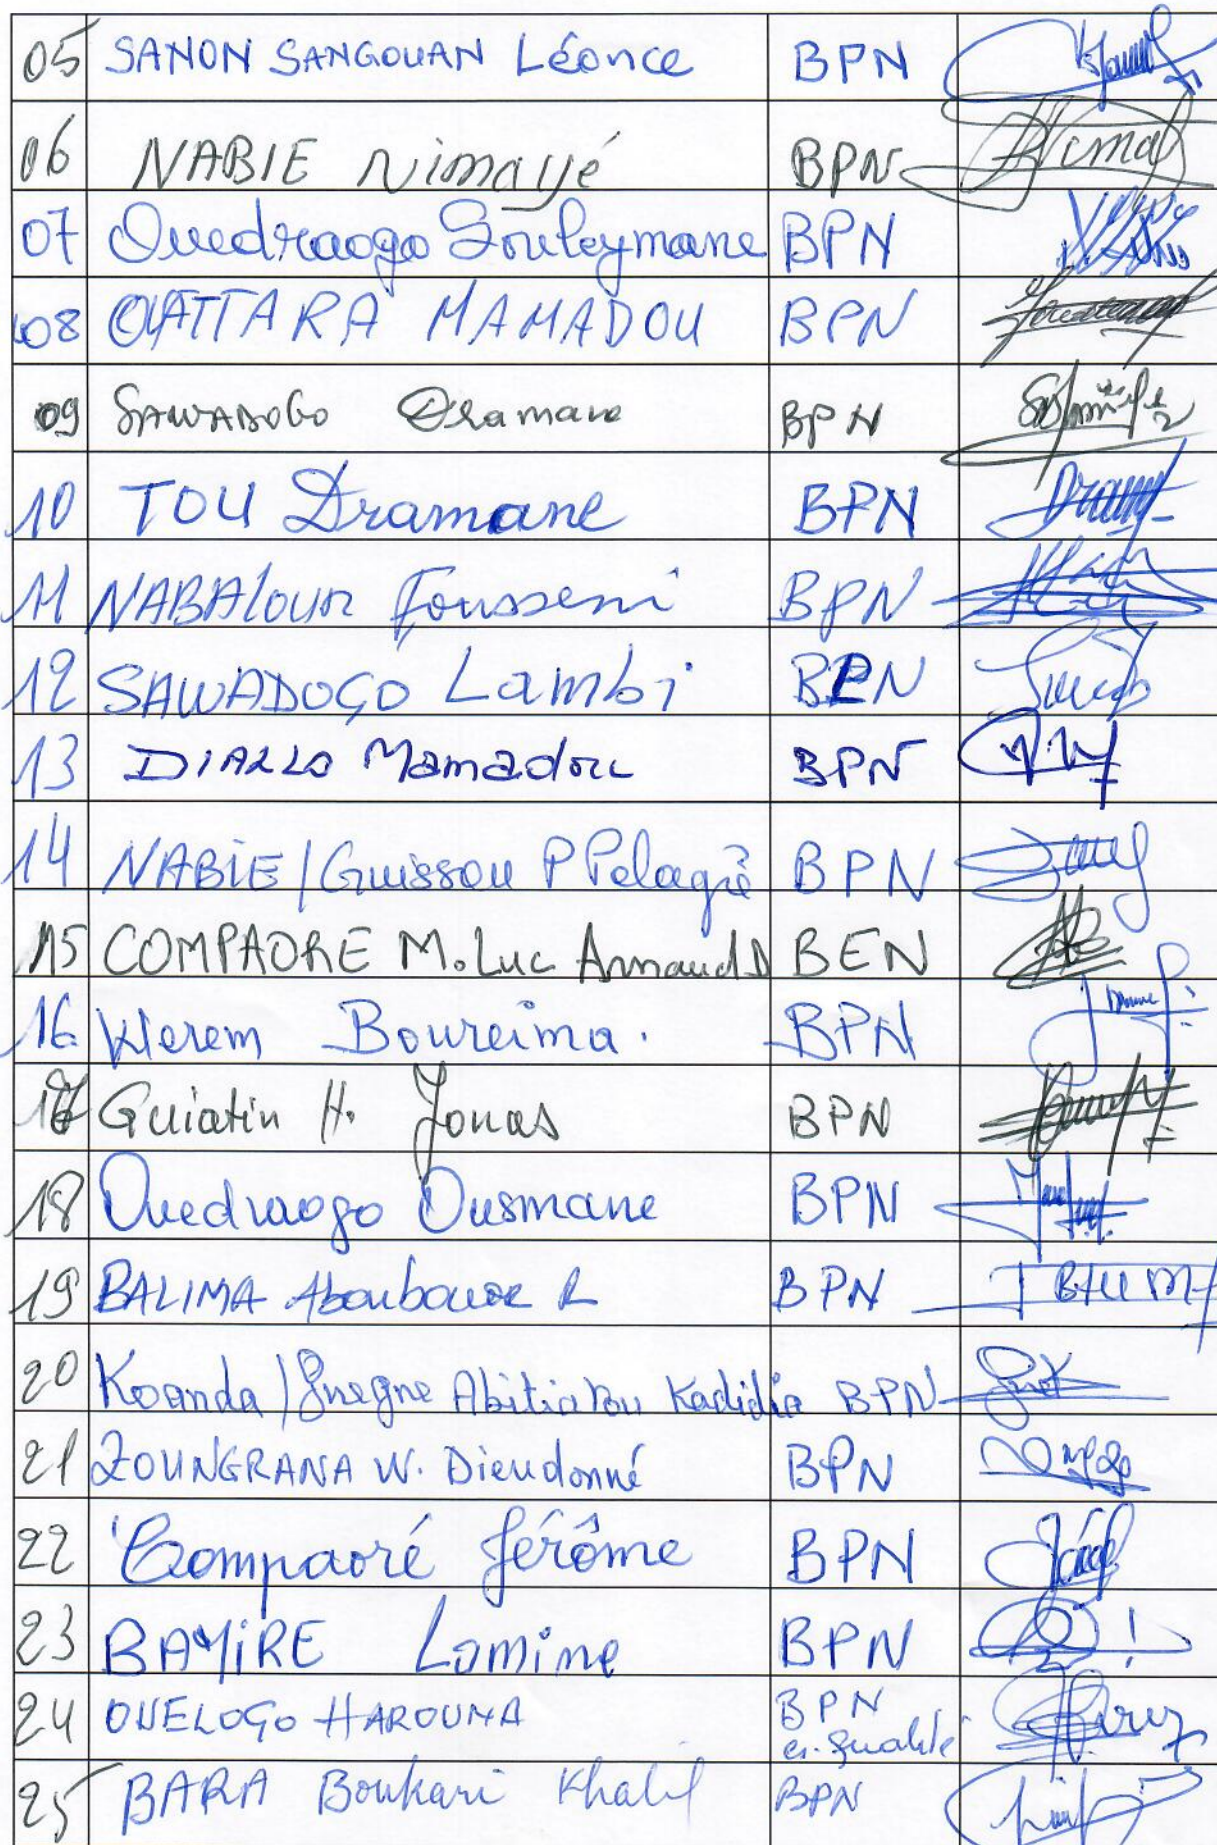 05 SANON SANGOUAN Léonce BPN
06 NABIE Nimayé BPN
07 Ouedraogo Souleymane BPN
08 OUATTARA MAMADOU BPN
09 SAWADOGO Dramane BPN
10 TOU Dramane BPN
11 NABALOUM Fousseni BPN
12 SAWADOGO Lambi BPN
13 DIALLO Mamadou BPN
14 NABIE / Guissou P Pelagie BPN
15 COMPAORE M. Luc Arnaud D BEN
16 Kierem Boureima. BPN
17 Guiatin H. Jonas BPN
18 Ouedraogo Ousmane BPN
19 BALIMA Aboubacar R BPN
20 Koanda / Gnegne Abitiatou Kadidia BPN
21 ZOUNGRANA W. Dieudonné BPN
22 Compaoré Jérôme BPN
23 BAYIRE Lamine BPN
24 OUELOGO HAROUNA BPN
25 BARA Boukari Khalil BPN